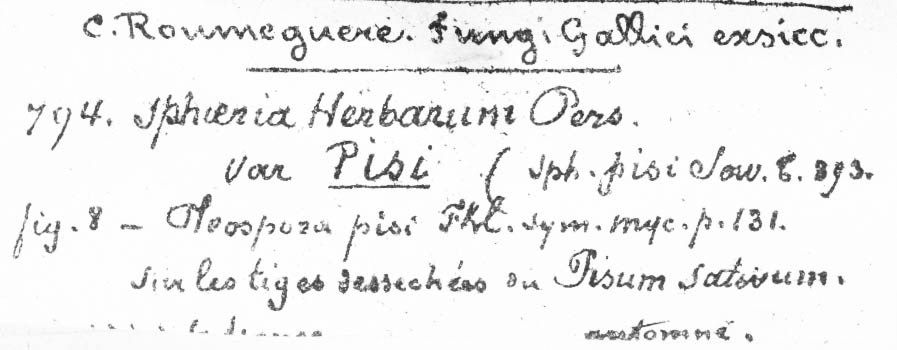 C. Roumeguere. Fungi Gallici exsicc.
794. Sphæria Herbarum Pers.
Var Pisi ( Sph. pisi Sow. t. 393.
fig. 8 — Pleospora pisi Fkl. sym. myc. p. 131.
Sur les tiges desséchées du Pisum Sativum.
automne.